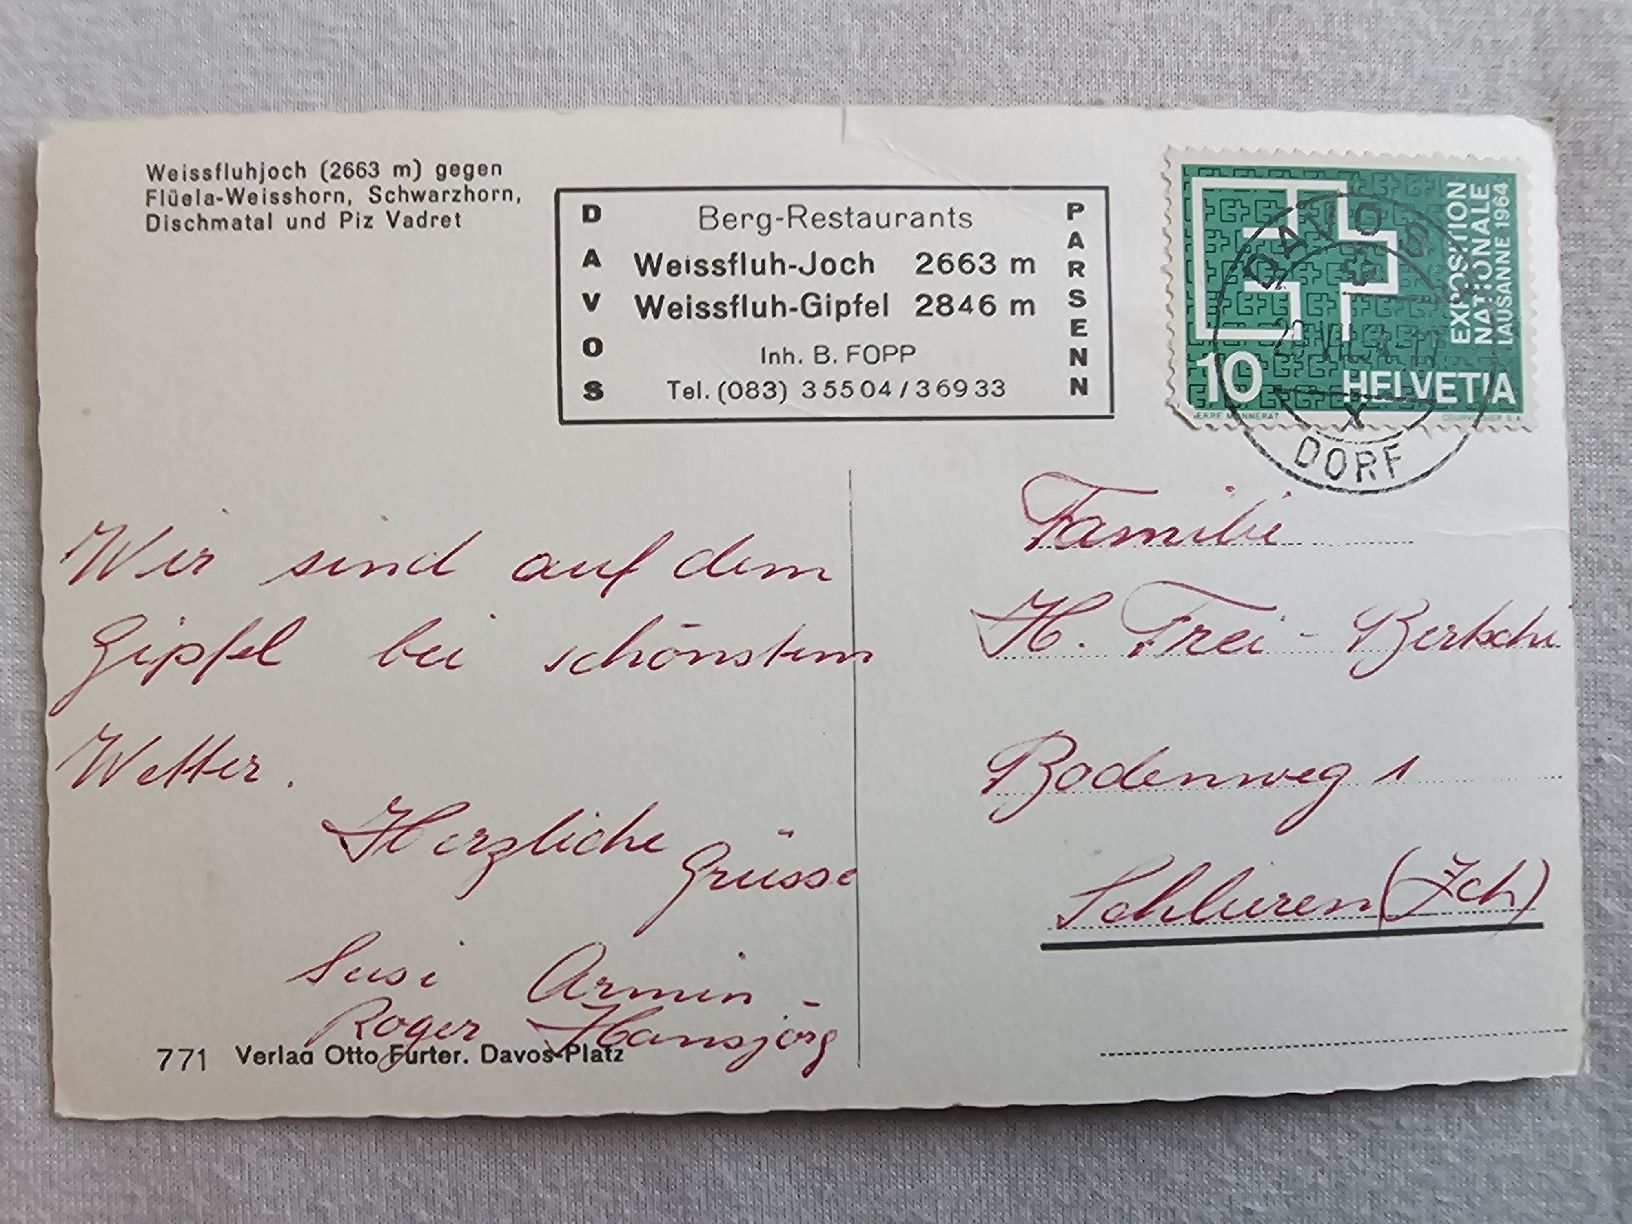 Weissfluhjoch (2663 m) gegen
Flüela-Weisshorn, Schwarzhorn,
Dischmatal und Piz Vadret
DAVOS
Berg-Restaurants
Weissfluh-Joch 2663 m
Weissfluh-Gipfel 2846 m
Inh. B. FOPP
Tel. (083) 3 55 04 / 3 69 33
PARSENN
EXPOSITION
NATIONALE
LAUSANNE 1964
10 HELVETIA
COURVOISIER S.A.
DAVOS
DORF
Wir sind auf dem
Gipfel bei schönstem
Wetter.
Herzliche
Grüsse
Susi Armin -
Roger Hansjörg
771 Verlag Otto Furter. Davos-Platz
Familie
H. Frei - Bertschi
Bodenweg 1
Schlieren (Zch)